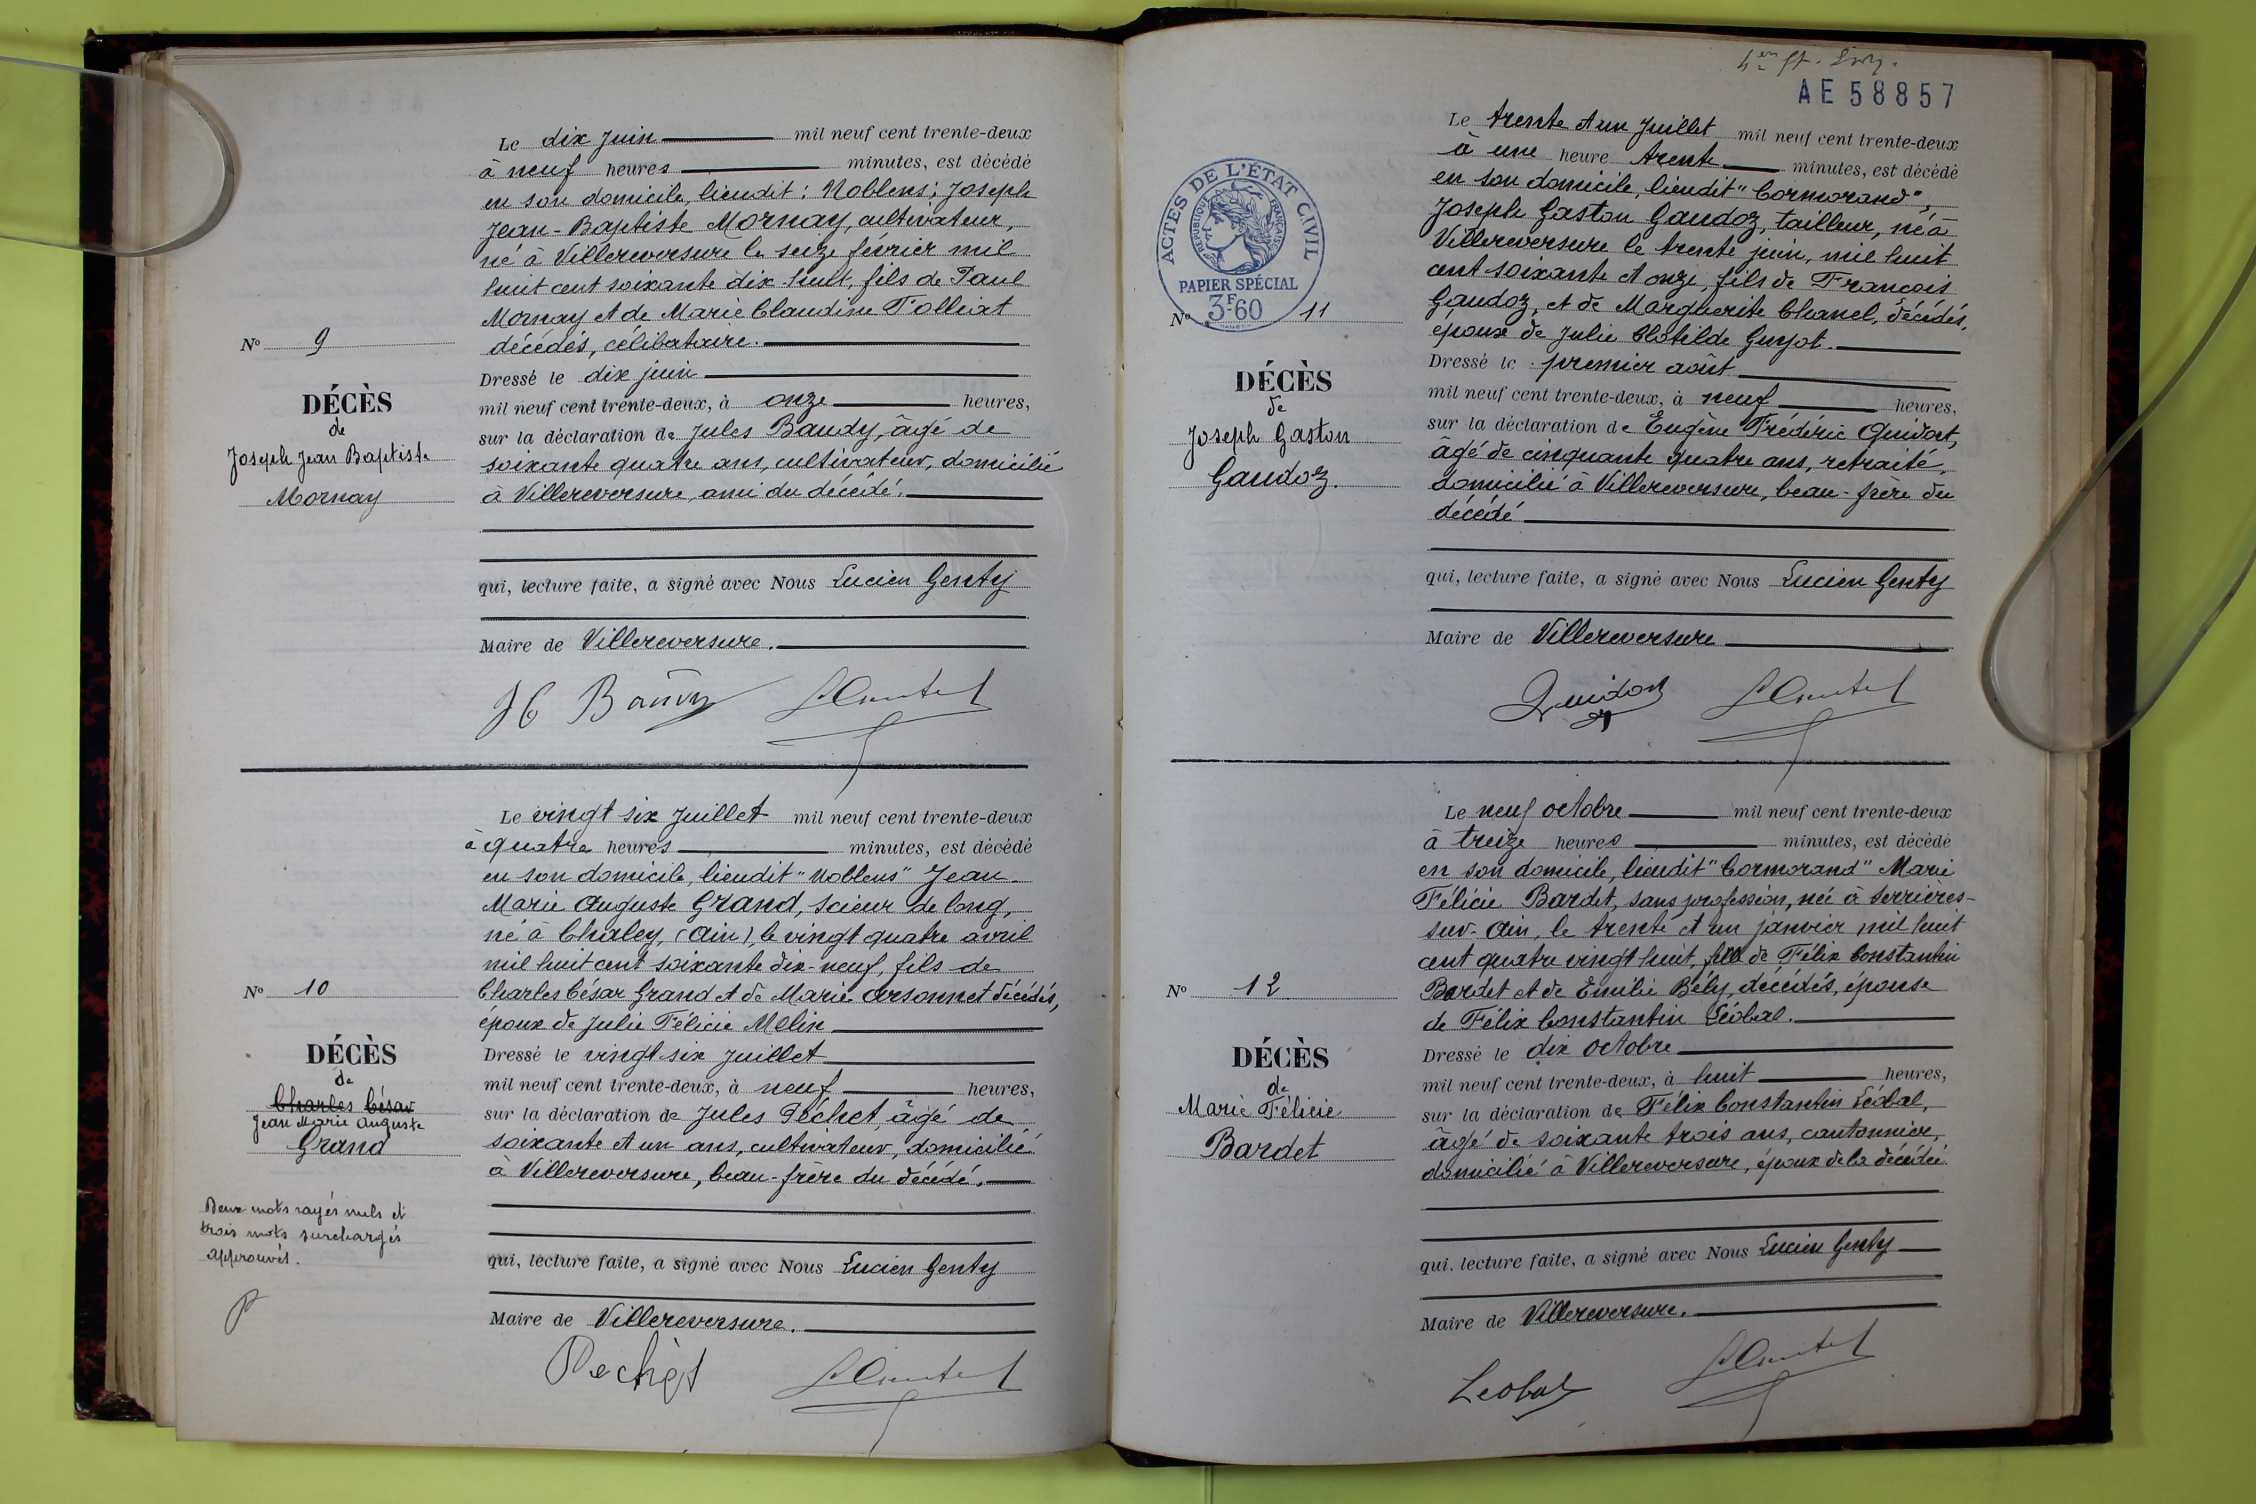 Le dix juin mil neuf cent trente-deux
à neuf heures minutes, est décédé
en son domicile, lieudit: Noblens; Joseph
Jean-Baptiste Mornay, cultivateur,
né à Villereversure le seize février mil
huit cent soixante dix huit, fils de Paul
Mornay et de Marie Claudine Tolliat
décédés, célibataire.
Dressé le dix juin
mil neuf cent trente-deux, à onze heures,
sur la déclaration de Jules Baudy, âgé de
soixante quatre ans, cultivateur, domicilié
à Villereversure, ami du décédé.
qui, lecture faite, a signé avec Nous Lucien Genty
Maire de Villereversure.
N° 9
DÉCÈS
de
Joseph Jean Baptiste
Mornay
Le vingt six juillet mil neuf cent trente-deux
à quatre heures minutes, est décédé
en son domicile, lieudit "Noblens" Jean
Marie Auguste Grand, scieur de long,
né à Chaley, (Ain), le vingt quatre avril
mil huit cent soixante dix-neuf, fils de
Charles César Grand et de Marie Arsonnet décédés,
époux de Julie Félicie Melin
Dressé le vingt six juillet
mil neuf cent trente-deux, à neuf heures,
sur la déclaration de Jules Péchet, âgé de
soixante et un ans, cultivateur, domicilié
à Villereversure, beau-frère du décédé.
qui, lecture faite, a signé avec Nous Lucien Genty
Maire de Villereversure.
Pechet
N° 10
DÉCÈS
de
Charles César
Jean Marie Auguste
Grand
Deux mots rayés nuls et
trois mots surchargés
approuvés.
AE 58857
Le trente et un juillet mil neuf cent trente-deux
à une heure trente minutes, est décédé
en son domicile, lieudit "Cormorand",
Joseph Gaston Gaudoz, tailleur, né à
Villereversure le trente juin, mil huit
cent soixante et onze, fils de François
Gaudoz, et de Marguerite Chanel, décédés,
époux de Julie Clotilde Guyot.
Dressé le premier août
mil neuf cent trente-deux, à neuf heures,
sur la déclaration de Eugène Frédéric Guidort,
âgé de cinquante quatre ans, retraité,
domicilié à Villereversure, beau-frère du
décédé
qui, lecture faite, a signé avec Nous Lucien Genty
Maire de Villereversure
ACTES DE L'ÉTAT CIVIL
RÉPUBLIQUE FRANÇAISE
PAPIER SPÉCIAL
3F60
N° 11
DÉCÈS
de
Joseph Gaston
Gaudoz.
Le neuf octobre mil neuf cent trente-deux
à treize heures minutes, est décédé
en son domicile, lieudit "Cormorand" Marie
Félicie Bardet, sans profession, née à Serrières-
sur-Ain, le trente et un janvier mil huit
cent quatre vingt huit, fille de Félix Constantin
Bardet et de Emilie Bély, décédés, épouse
de Félix Constantin Léobal.
Dressé le dix octobre
mil neuf cent trente-deux, à huit heures,
sur la déclaration de Félix Constantin Léobal,
âgé de soixante trois ans, cantonnier,
domicilié à Villereversure, époux de la décédée.
qui, lecture faite, a signé avec Nous Lucien Genty
Maire de Villereversure.
Leobal
N° 12
DÉCÈS
de
Marie Félicie
Bardet